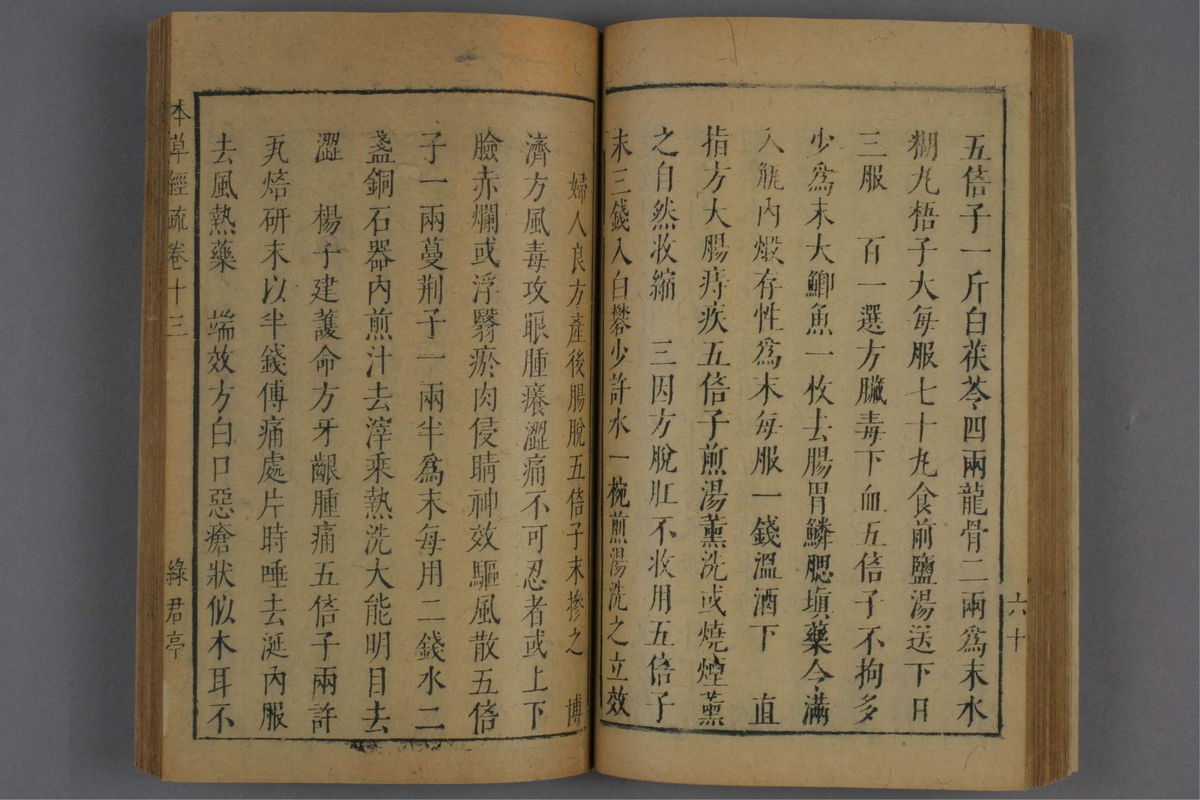 五倍子一斤白茯苓四兩龍骨二兩爲末水
糊丸梧子大每服七十丸食前鹽湯送下日
三服　百一選方臟毒下血五倍子不拘多
少爲末大鯽魚一枚去腸胃鱗腮塡藥令滿
入瓶內煅存性爲末每服一錢溫酒下　直
指方大腸痔疾五倍子煎湯薰洗或燒煙薰
之自然收縮　三因方脫肛不收用五倍子
末三錢入白礬少許水一椀煎湯洗之立效
六十
婦人良方產後腸脫五倍子末摻之　博
濟方風毒攻眼腫癢澀痛不可忍者或上下
瞼赤爛或浮翳瘀肉侵睛神效驅風散五倍
子一兩蔓荆子一兩半爲末每用二錢水二
盞銅石器內煎汁去滓乘熱洗大能明目去
澀　楊子建護命方牙齦腫痛五倍子兩許
瓦焙研末以半錢傅痛處片時唾去涎內服
去風熱藥　端效方白口惡瘡狀似木耳不
本草經疏卷十三
綠君亭